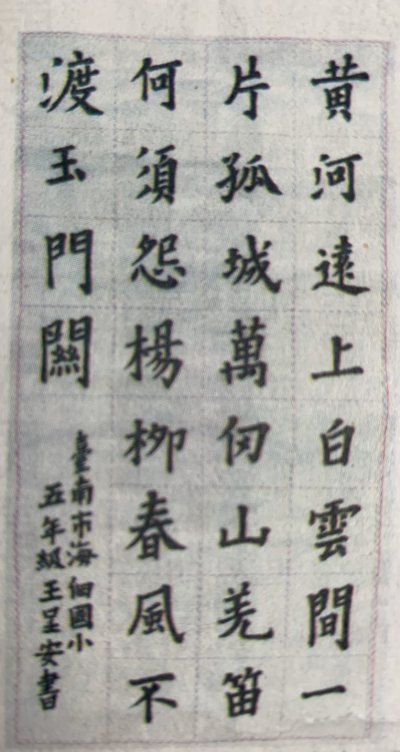 黄河遠上白雲間一
片孤城萬仞山羌笛
何須怨楊柳春風不
渡玉門關
臺南市海佃國小
五年級王呈安書